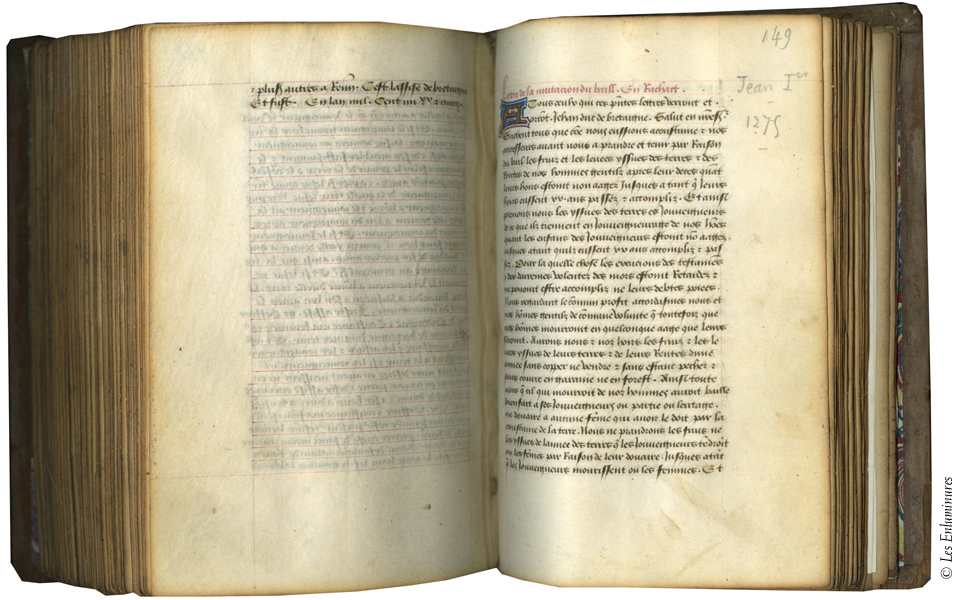 plus autres a Renn. Cest lassise de bretaigne
Et fust. En lan mil. Cent
149
Jean Ier
1275
Lettre de la mutacion du baill. En Rachact.
A Tous ceulx qui ces pntes lettres verront et
orront. Jehan duc de bretaigne. Salut en
Sachent tous que cõe nous eussions acoustume & nos
ancesseurs avant nous a prandre et tenir par Raison
du bail les fruiz et les levees yssues des terres & des
Rentes de nos hommes gentilz apres leur deces quãt
leurs hoirs estoint non aagez Jusques a tant q̃ leurs
hoirs eussent xx. ans passez & accompliz. Et aussi
prenons nous les yssues des terres es Jouveigneurs
de ce que ilz tiennent en Jouveigneurage de nos hões
quant les enfans des Jouveigneurs estoint nõ aagez.
Jusques atant quilz eussent xx ans acompliz & pas
sez. Pour la quelle chose les execucions des testamens
& des darrenes volentez des mors estoint Retardez &
ne povoint estre accompliz ne leurs debtes paiees.
Nous regardant le cõmun profit accordasmes nous et
nos hões gentilz de cõmune volunte q̃ toutefoiz que
nos hões mourront en quelconque aage que leurs
seront. Aurons nous & noz hoirs les fruiz & les le
vees yssues de leurs terres & de leurs Rentes dune
annee sans copper ne vendre & sans estanc pecher &
sans courre en garanne ne en forest. Ainsi toute
voies q̃ cil qui mourroit de nos hommes avoit baille
bienfait a ses Jouveigneurs ou partie ou heritage.
ne douaire a aucune fẽme qui avoir le doit par la
coustume de la terre. Nous ne prandrons les fruis ne
les yssues de lannee des terres q̃ les Jouveigneurs tẽdroit
ou les fẽmes par Raison de leur douaire Jusques atãt
q̃ les Jouveigneurs mourissent ou les femmes. Et
© Les Enluminures